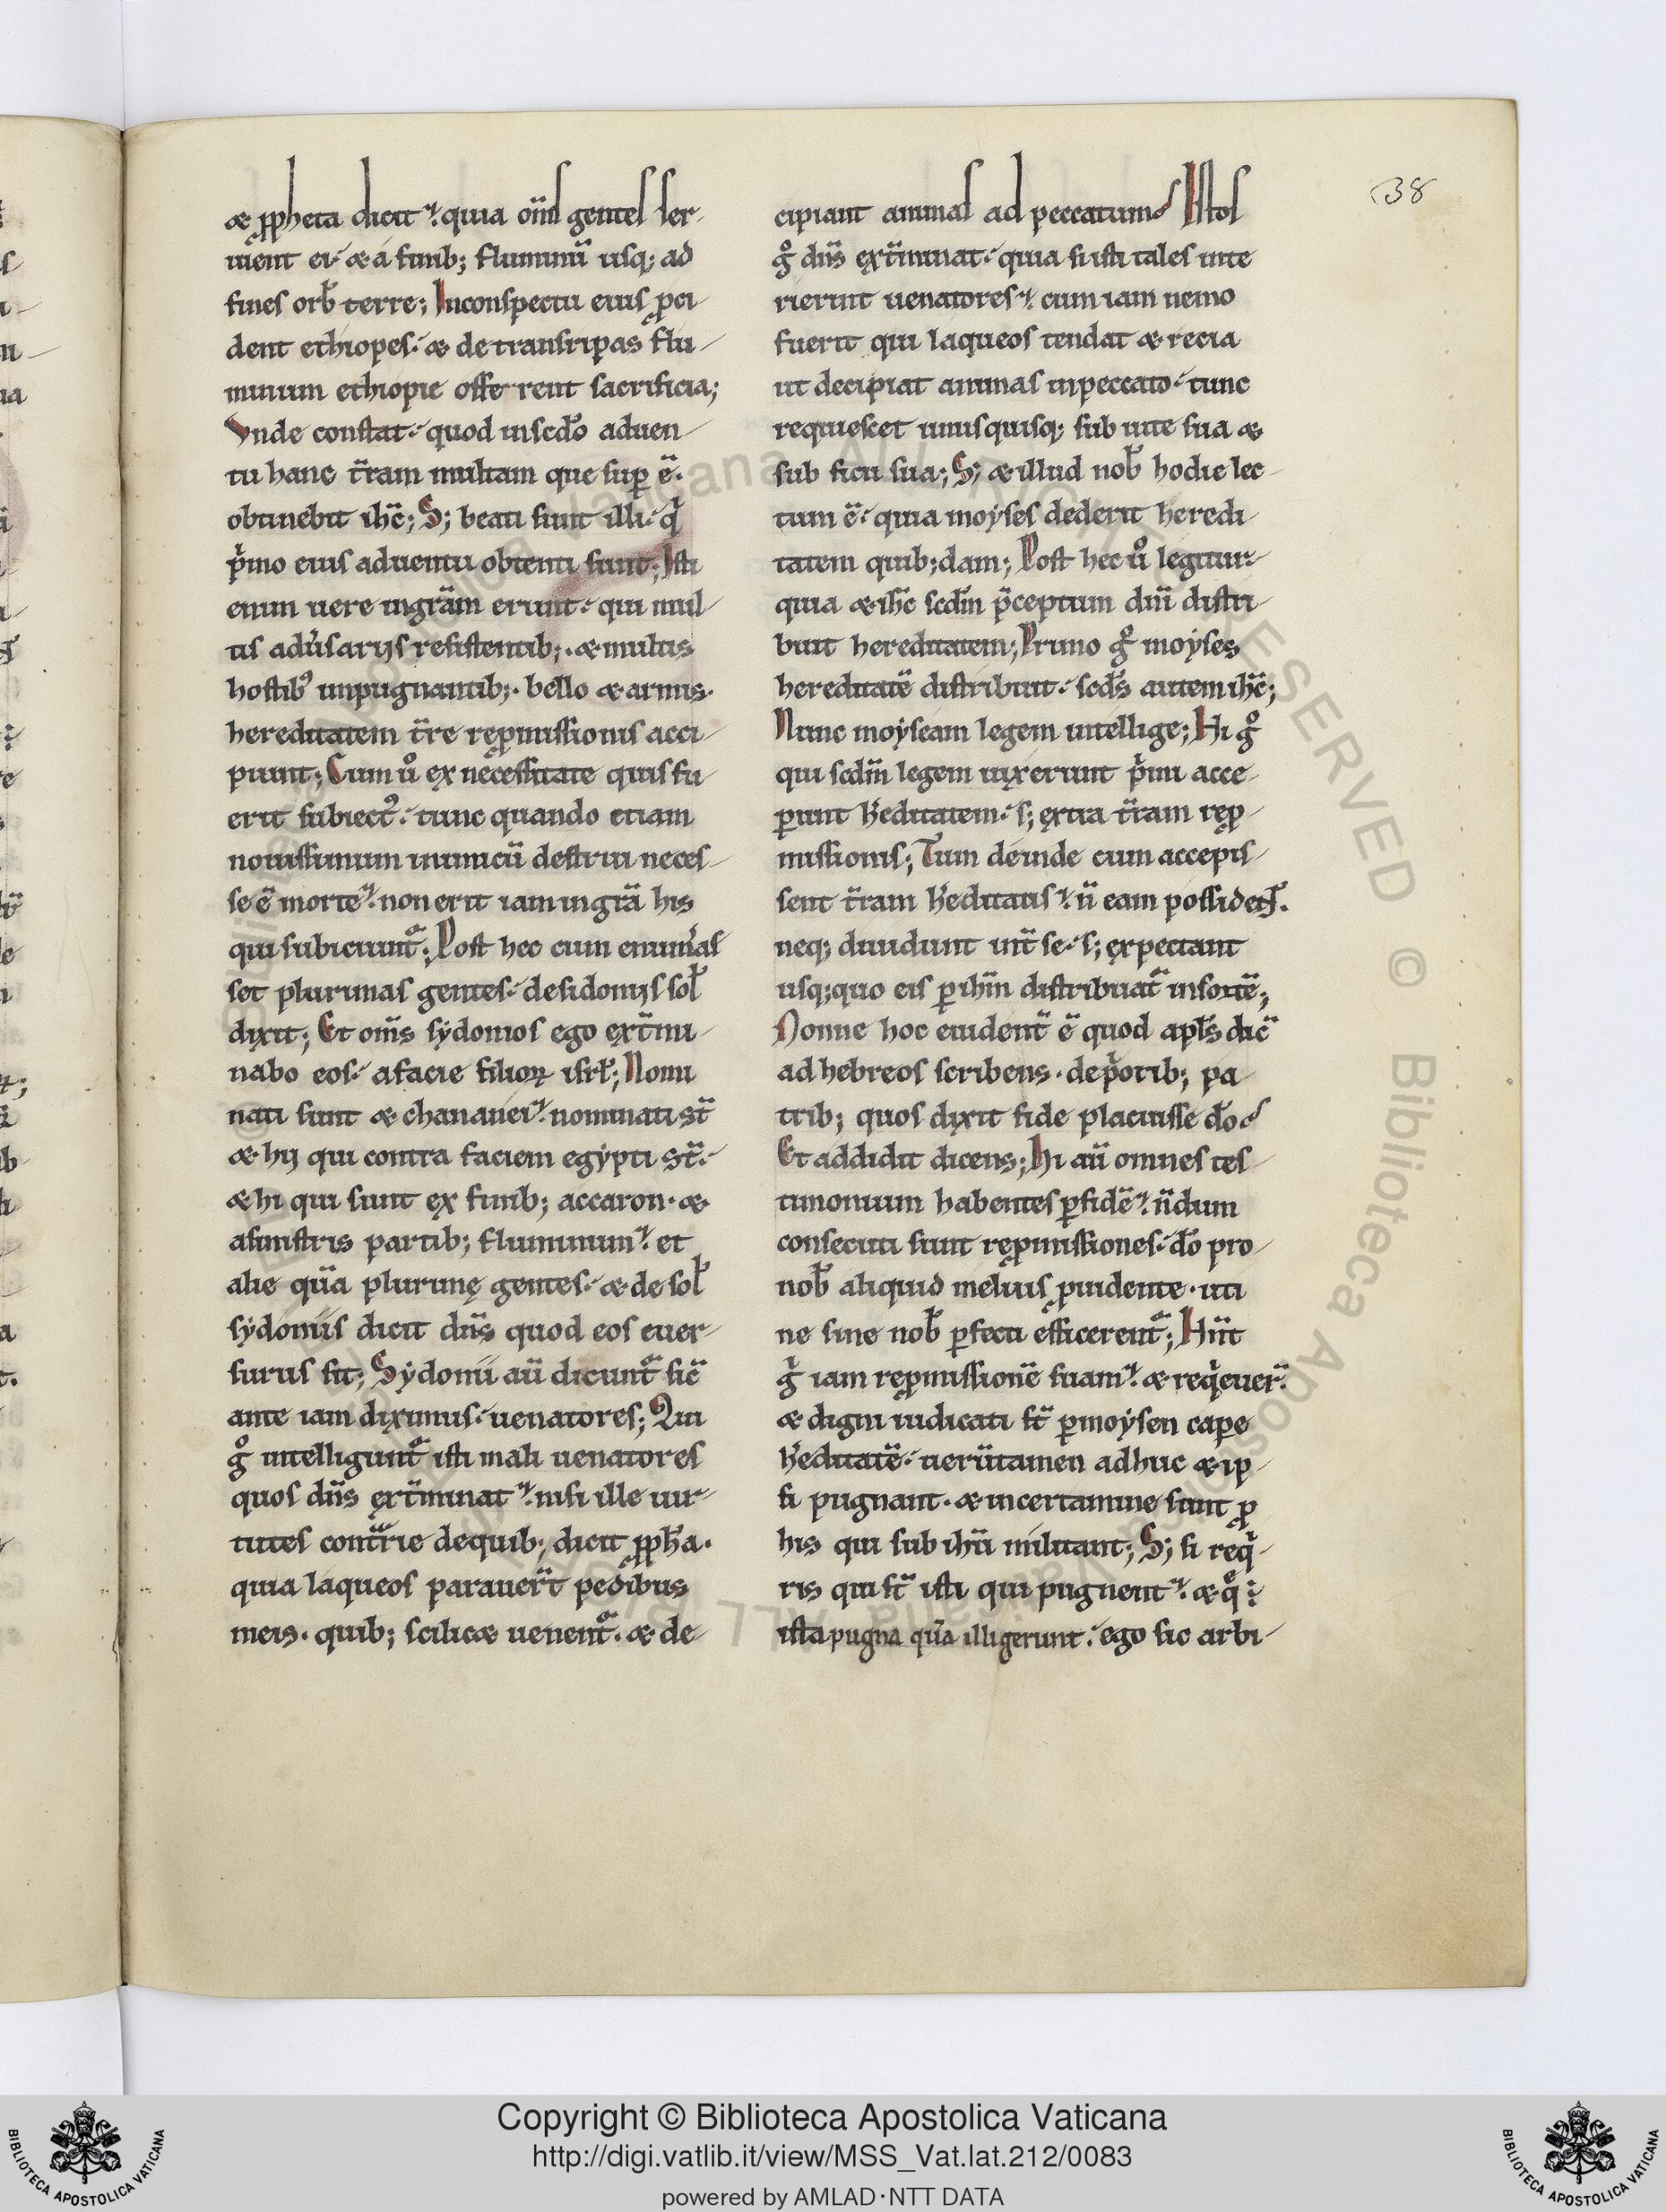 38
& ꝓpheta dicit. quia om̅s gentes ser-
uient ei. & a finib; fluminū usq; ad
fines orb̅ terre; Inconspectu eius ꝓci-
dent ethiopes. & de transripas flu-
minum ethiopie offerrent sacrificia;
Vnde constat. quod inscd̅o aduen-
tu hanc t̅ram multam que suꝑ ē.
obtinebit ih̅c; S; beati sunt illi. qͥ
pͥmo eius aduentu obtenti sunt; Isti
enim uere ingr̅am erunt. qui mul-
tis adu̅sarijs resistentib;. & multis
hostibꝰ inpugnantib;. bello & armis.
hereditatem t̅re reꝓmissionis acci-
piunt; Cum uͦ ex necessitate quis fu-
erit subiectꝰ. tunc quando etiam
nouissimum inimicū destrui neces-
se ē morte. non erit iam ingr̅a his
qui subiciunt̅; Post hec cum enum̅as-
set plurimas gentes. de sidonijs sol̅
dixit; Et om̅s sẏdonios ego ext̅mi-
nabo eos. a facie filioꝝ isrl̅; Nomi-
nati sunt & chananei. nominati st̅
& hij qui contra faciem egẏpti st̅.
& hi qui sunt ex finib; accaron. &
asinistris partib; fluminum. et
alie qūa plurimę gentes. & de sol̅
sẏdoniis dicit dn̅s quod eos euer-
surus sit; Sẏdonii aū dicunt̅ sic̅
ante iam diximus. uenatores; Qui
gͦ intelligunt̅ isti mali uenatores
quos dn̅s ext̅minat. nisi ille uir-
tutes cont̅rie de quib; dicit ꝓph̅a.
quia laqueos parauer̅t pedibus
meis. quib; scilic& uenent̅. & de-
cipiant animas ad peccatum. Istos
gͦ dn̅s ext̅minat. quia si isti tales inte
rierint uenatores. cum iam nemo
fuerit qui laqueos tendat & recia
ut decipiat animas inpeccato. tunc
requiescet unusquisq; sub uite sua &
sub ficu sua; S; & illud nob̅ hodie lec-
tum ē. quia moẏses dederit heredi
tatem quib;dam; Post hec uͦ legitur.
quia & ih̅c scd̅m p̅ceptum dn̅i distri-
buit hereditatem; Primo gͦ moẏses
hereditatē distribuit. scd̅s autem ih̅c;
Nunc moẏseam legem intellige; Hi gͦ
qui scd̅m legem uixerunt pͥmi acce-
ꝑunt h̅editatem. s; extra t̅ram reꝓ-
missionis; Tum deinde cum accepis-
sent t̅ram h̅editatis. n̅ eam possident̅.
neq; diuidunt int̅ se. s; expectant
usq;quo eis ꝑ ih̅m distribuat̅ insortē;
Nonne hoc euident̅ ē quod apl̅s dic̅
ad hebreos scribens. de pͥorib; pa-
trib; quos dixit fide placuisse d̅o.
Et addidit dicens; Hi aū omnes tes-
timonium habentes ꝑfidē. n̅dum
consecuti sunt reꝓmissiones. d̅o pro-
nob̅ aliquid melius ꝓuidente. uti
ne sine nob̅ ꝑfecti efficerent̅; Hn̅t
gͥ iam reꝓmissionē suam. & reqͥeuer̅.
& digni iudicati st̅ ꝑ moẏsen cape
h̅editatē. uerūtamen adhuc & ip-
si pugnant. & incertamine sunt ꝓ
his qui sub ih̅u militant; S; si reqͥ-
ris qui st̅ isti qui pugnent. & qͣ
ista pugna qūa illi gerunt. ego sic arbi-
Copyright © Biblioteca Apostolica Vaticana
http://digi.vatlib.it/view/MSS_Vat.lat.212/0083
powered by AMLAD·NTT DATA
BIBLIOTECA APOSTOLICA VATICANA
BIBLIOTECA APOSTOLICA VATICANA